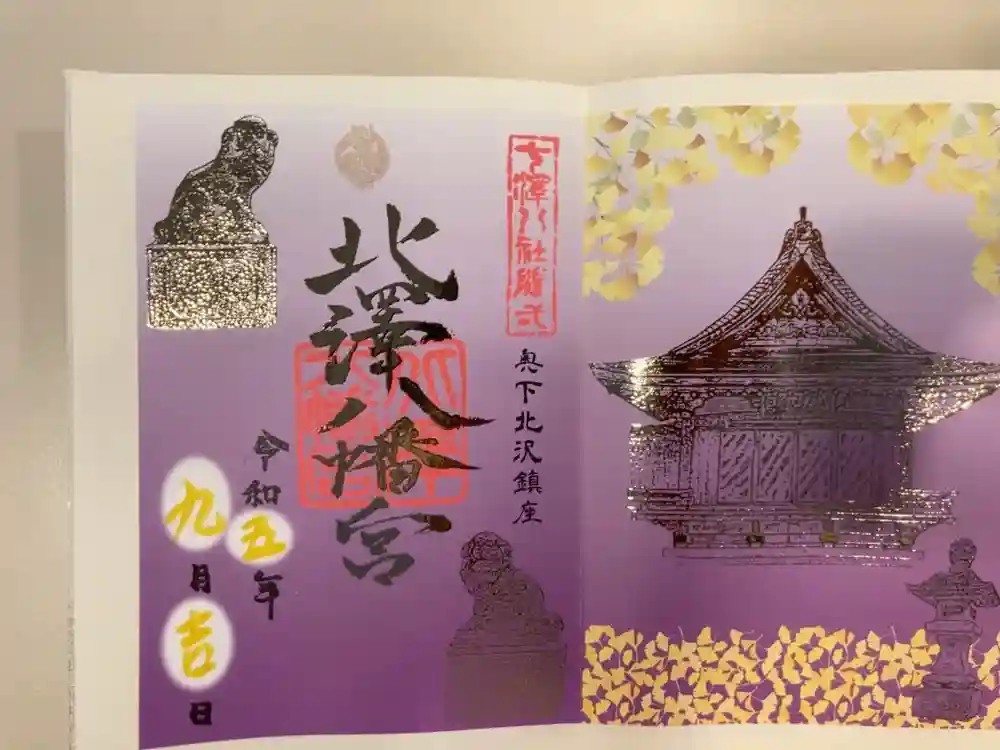 七澤八社随弌
奥下北沢鎮座
北澤八幡宮
令和五年
九月吉日